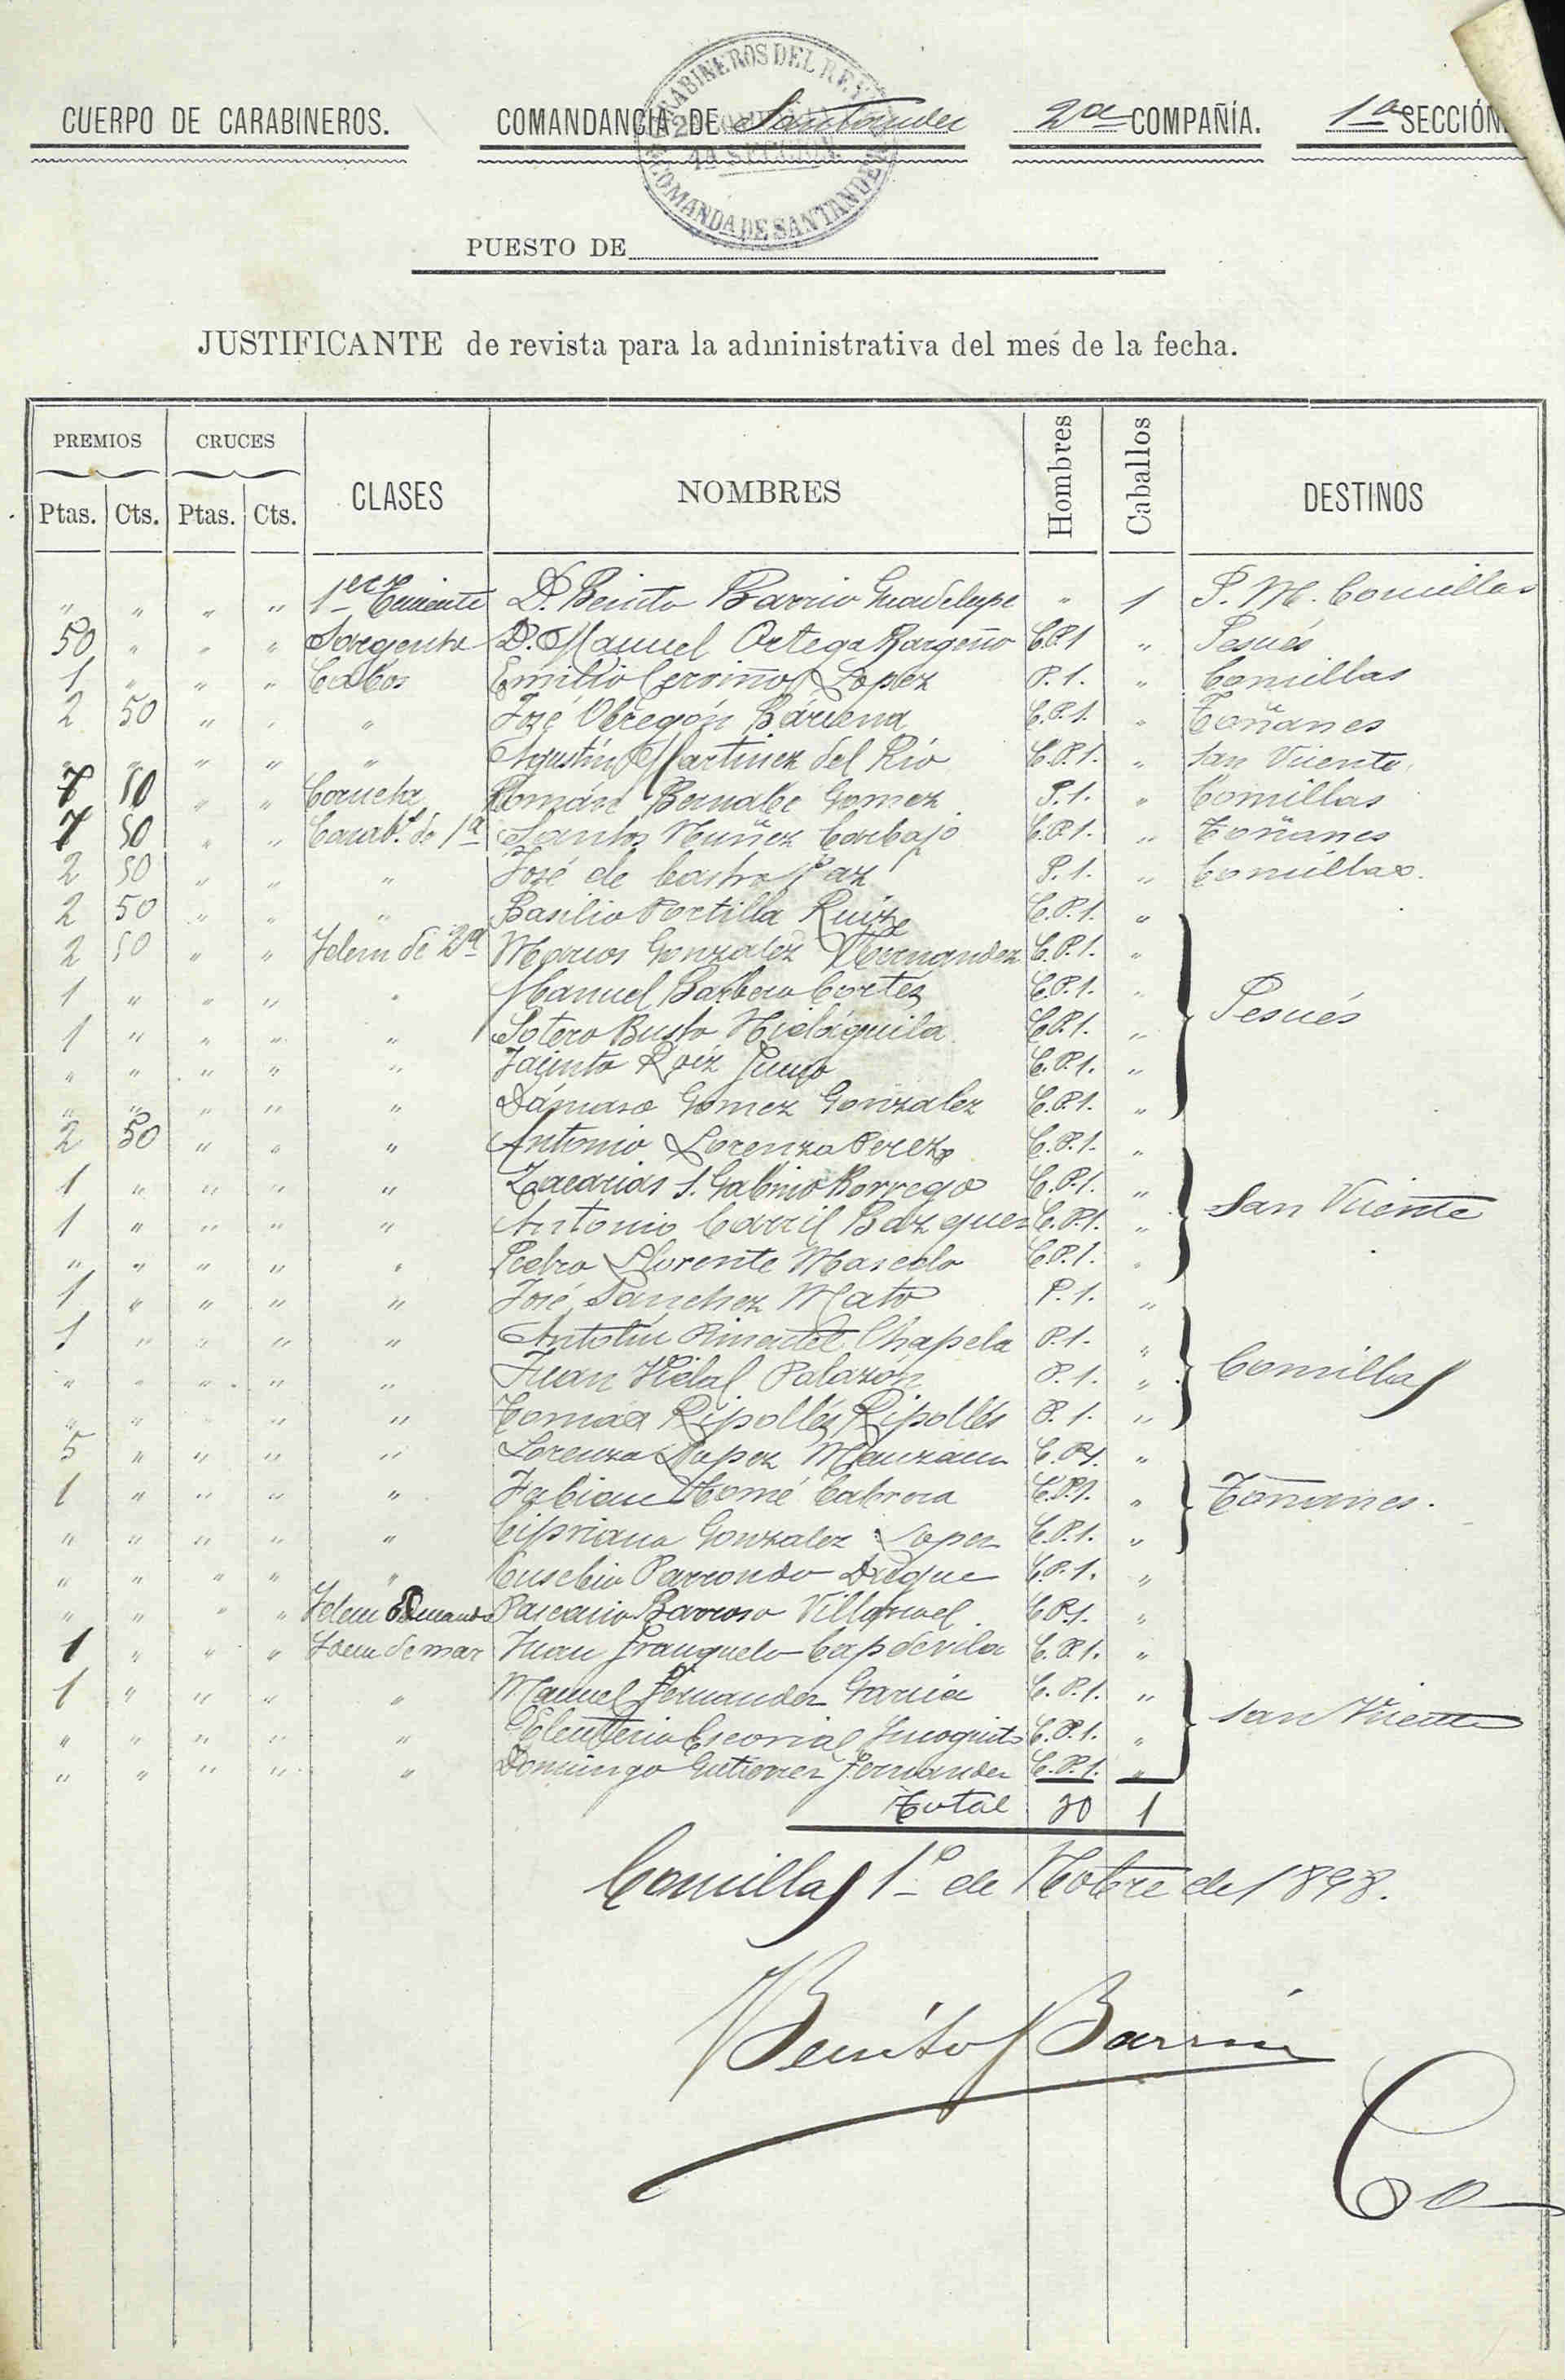 CARABINEROS DEL REY
1A SECCION
COMANDA DE SANTANDER
CUERPO DE CARABINEROS. COMANDANCIA DE Santander 2ª COMPAÑÍA. 1ª SECCIÓN
PUESTO DE
JUSTIFICANTE de revista para la administrativa del mes de la fecha.
PREMIOS CRUCES CLASES NOMBRES Hombres Caballos DESTINOS
Ptas. Cts. Ptas. Cts.
" " " " 1er Teniente D. Benito Barrio Guadelupe " 1 P. M. Comillas
50 " " " Sargento D. Manuel Ortega Bargeño C.P.1 " Pesués
1 " " " Cabos Emilio Lopez P.1. " Comillas
2 50 " " " José Obregón Bárcena C.P.1. " Toñanes
" " " " " Agustín Martinez del Río C.P.1. " San Vicente
7 50 " " Corneta Román Bernabe Gomez P.1. " Comillas
7 50 " " Carab.º de 1ª Santos Nuñez Carbajo C.P.1. " Toñanes
2 50 " " " José de Castro Paz P.1. " Comillas.
2 50 " " " Basilio Portilla Ruiz C.P.1. "
2 50 " " Idem de 2ª Marcos Gonzalez Hernandez C.P.1. "
1 " " " " Manuel Barbero Cortés C.P.1. " Pesués
1 " " " " Sotero Busto Hidáguila C.P.1. "
" " " " " Jacinto Roiz C.P.1. "
" " " " " Dámaso Gomez Gonzalez C.P.1. "
2 50 " " " Antonio Lorenzo Perez C.P.1. "
1 " " " " Zacarias S. Gabino Borrego C.P.1. " San Vicente
1 " " " " Antonio Carril Bazquez C.P.1. "
" " " " " Pedro Llorente Macedo C.P.1. "
1 " " " " José Sanchez Mato P.1. "
1 " " " " Antolín Pimentel Chapela P.1. "
" " " " " Juan Vidal Palazón P.1. " Comillas
" " " " " Tomás Ripollés Ripollés P.1. "
5 " " " " Lorenzo Lopez Manzano C.P.1. "
1 " " " " Fabian Tomé Cabrera C.P.1. " Toñanes.
" " " " " Cipriano Gonzalez Lopez C.P.1. "
" " " " " Eusebio Parrondo Duque C.P.1. "
" " " " Idem Pascasio Barroso Villarroel C.P.1. "
1 " " " Idem de mar Juan Franquelo Capdevila C.P.1. "
1 " " " " Manuel Fernandez Garcia C.P.1. " San Vicente
" " " " " Eleuterio Escorial Incognito C.P.1. "
" " " " " Domingo Gutierrez Fernandez C.P.1. "
Total 30 1
Comillas 1º de Nobre de 1898.
Benito Barrio
Co